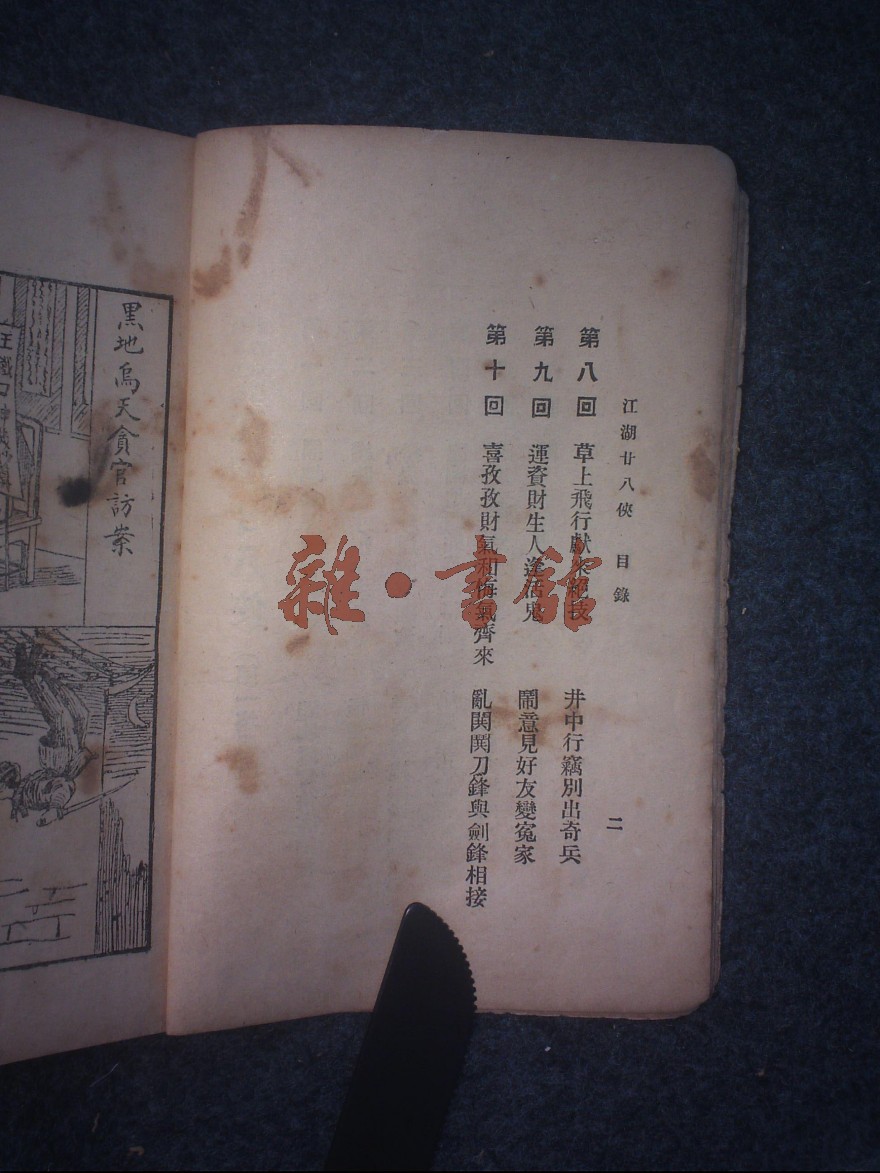 江湖廿八俠 目錄 二
第八回 草上飛行獻來絕技 井中行竊別出奇兵
第九回 運資財生人逢活鬼 鬧意見好友變冤家
第十回 喜孜孜財氣和悔氣齊來 亂鬨鬨刀鋒與劍鋒相接
雜·書館
黑地烏天貪官訪案